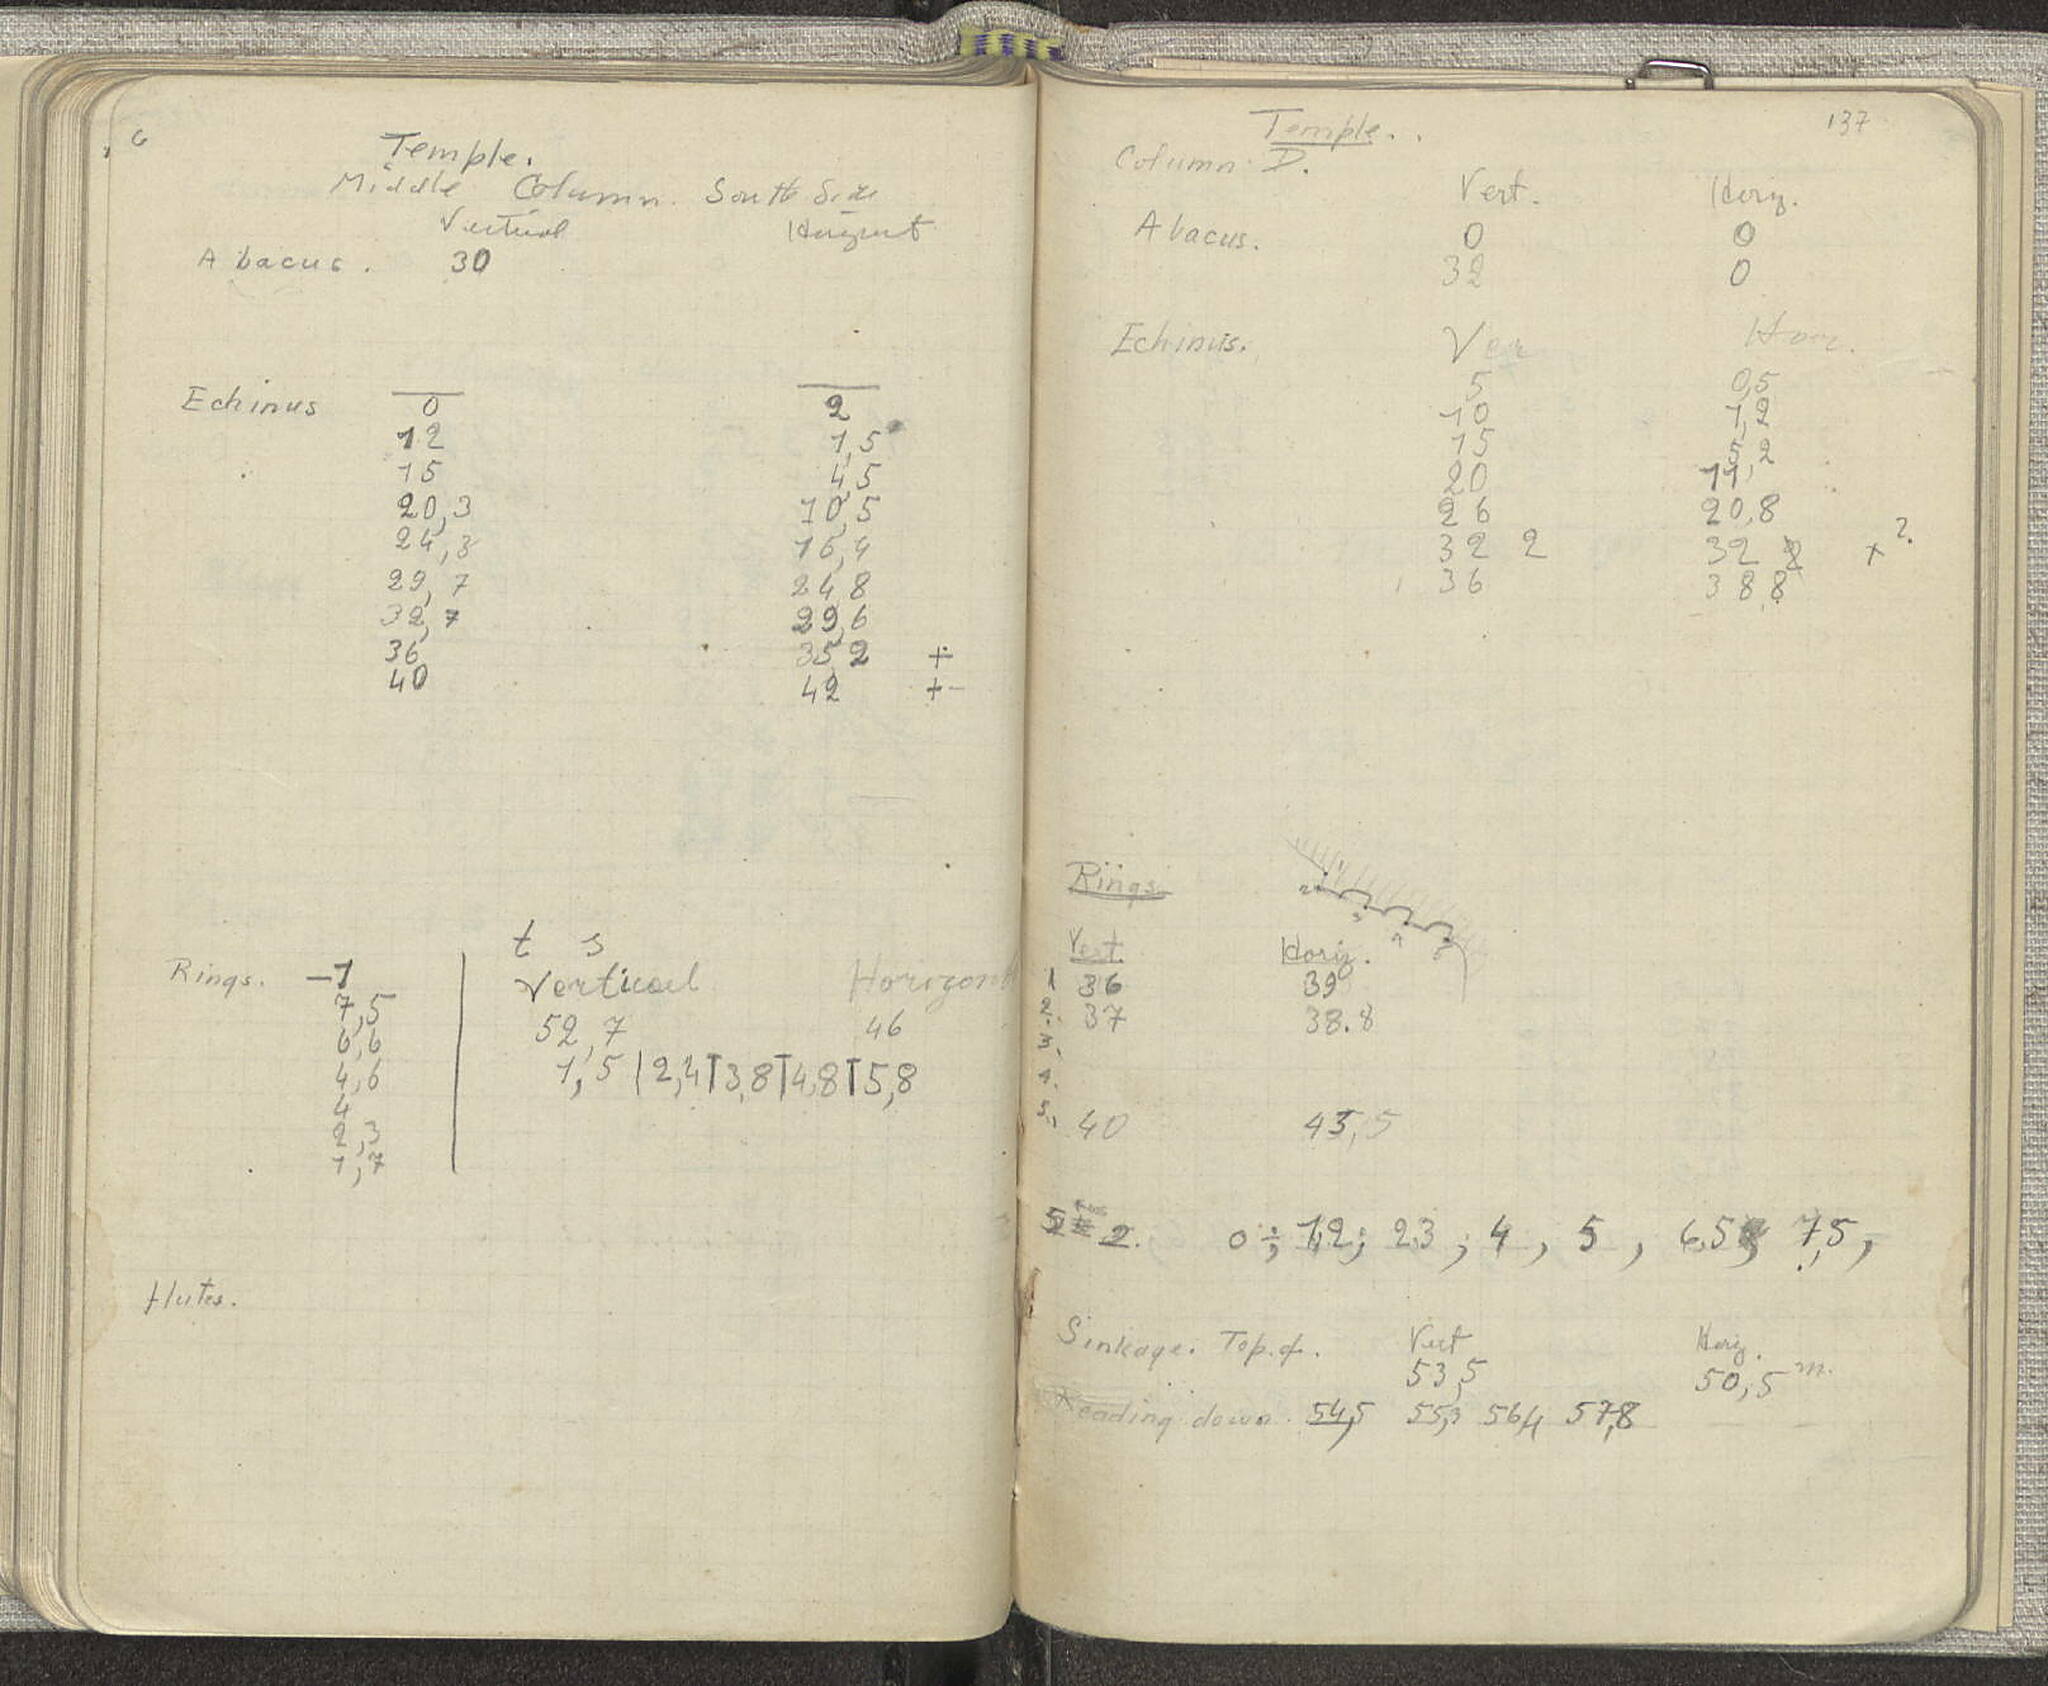 6
Temple.
Middle Column. South Side
Vertical
Abacus. 30
Echinus 0 2
12 1,5
15 4,5
20,3 10,5
24,3 16,4
29,7 24,8
32,7 29,6
36 35,2 +
40 42 +-
t s
Rings. -1 Vertical Horizont
7,5 52,7 46
6,6
4,6 1,5 | 2,4 T 3,8 T 4,8 T 5,8
4
2,3
1,7
Flutes.
137
Temple.
Column D.
Vert. Horiz.
Abacus. 0 0
32 0
Echinus. Ver Hor.
5 0,5
10 1,2
15 5,2
20 11,
26 20,8
32 2 32 2 + ?.
36 38,8
Rings.
Vert. Horiz.
1 36 39
2. 37 38.8
3.
4.
5. 40 43,5
0 ; 1,2 ; 2,3 ; 4 , 5 , 6,5 , 7,5 ,
Sinkage. Top of. Vert Horiz.
53,5 50,5 m.
Reading down. 54,5 55,3 56,4 57,8